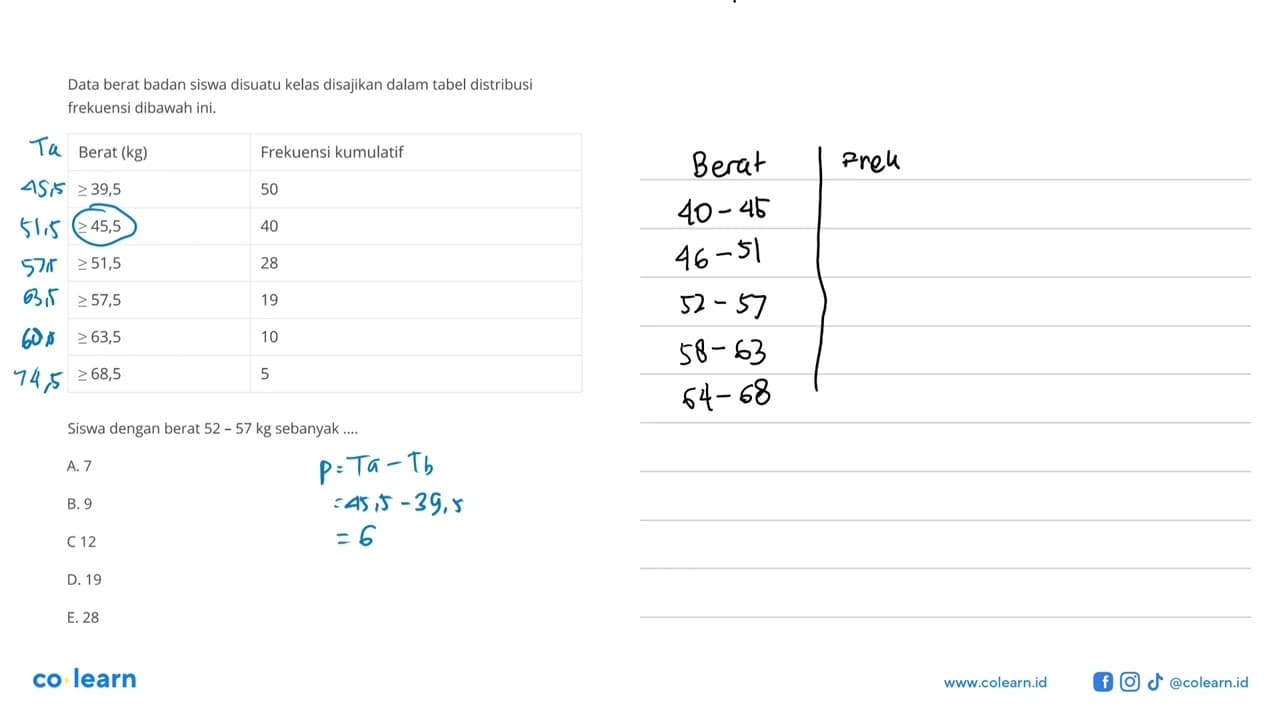 Data berat badan siswa disuatu kelas disajikan dalam tabel distribusi
frekuensi dibawah ini.
Ta Berat (kg) Frekuensi kumulatif
45,5 ≥ 39,5 50
51,5 ≥ 45,5 40
57,5 ≥ 51,5 28
63,5 ≥ 57,5 19
≥ 63,5 10
74,5 ≥ 68,5 5
Siswa dengan berat 52 – 57 kg sebanyak ....
A. 7
B. 9
C 12
D. 19
E. 28
P = Ta - Tb
= 45,5 - 39,5
= 6
Berat Frek
40 - 45
46 - 51
52 - 57
58 - 63
64 - 68
co learn
www.colearn.id
@colearn.id